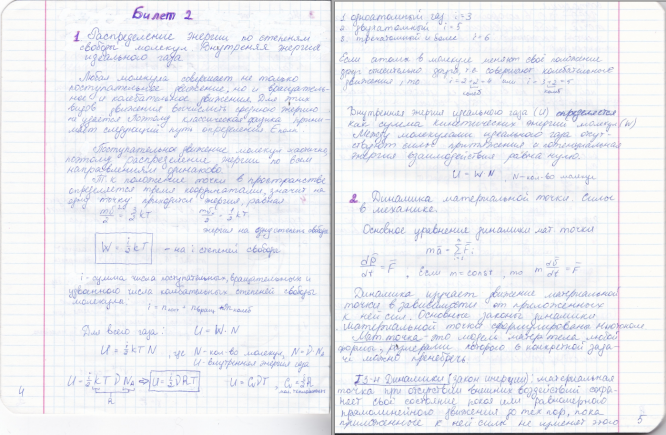 Билет 2
1. Распределение энергии по степеням
свободы молекул. Внутренняя энергия
идеального газа
Любая молекула совершает не только
поступательное движение, но и вращатель-
ное и колебательное движения. Для этих
видов движения вычислить среднюю энергию
Поэтому классическая физика прини-
мает следующий путь определения
Поступательное движение молекул хаотично,
поэтому распределение энергии по всем
направлениям одинаково.
Т.к положение точки в пространстве
определяется тремя координатами, значит на
одну точку приходится энергия, равная
энергия на одну степень свободы
W = i/2 kT - на i степеней свободы
i - сумма числа поступательных, вращательных и
удвоенного числа колебательных степеней свободы
молекулы.
Для всего газа: U = W·N
U = i/2 kT N, где N - кол-во молекул,
U - внутренняя энергия газа
4
1. одноатомный газ i=3
2. двухатомный i=5
3. трехатомный и более i=6
Если атомы в молекуле меняют своё положение
друг относительно друга, т.е. совершают колебательные
движения, то
Внутренняя энергия идеального газа (U) определяется
как сумма кинетических энергий молекул (W)
Между молекулами идеального газа отсут-
ствуют силы притяжения и потенциальная
энергия взаимодействия равна нулю.
U = W N, N - кол-во молекул
2. Динамика материальной точки. Силы
в механике.
Основное уравнение динамики мат. точки
, если m = const, то
Динамика изучает движение материальной
точки в зависимости от приложенных
к ней сил. Основные законы динамики
материальной точки сформулированы Ньютоном.
Мат. точка - это модель мат. тела любой
формы, размерами которого в конкретной зада-
че можно пренебречь.
I з-н Динамики (закон инерции): материальная
точка при отсутствии внешних воздействий сохра-
няет своё состояние покоя или равномерного
прямолинейного движения до тех пор, пока
приложенные к ней силы не изменят этого
5